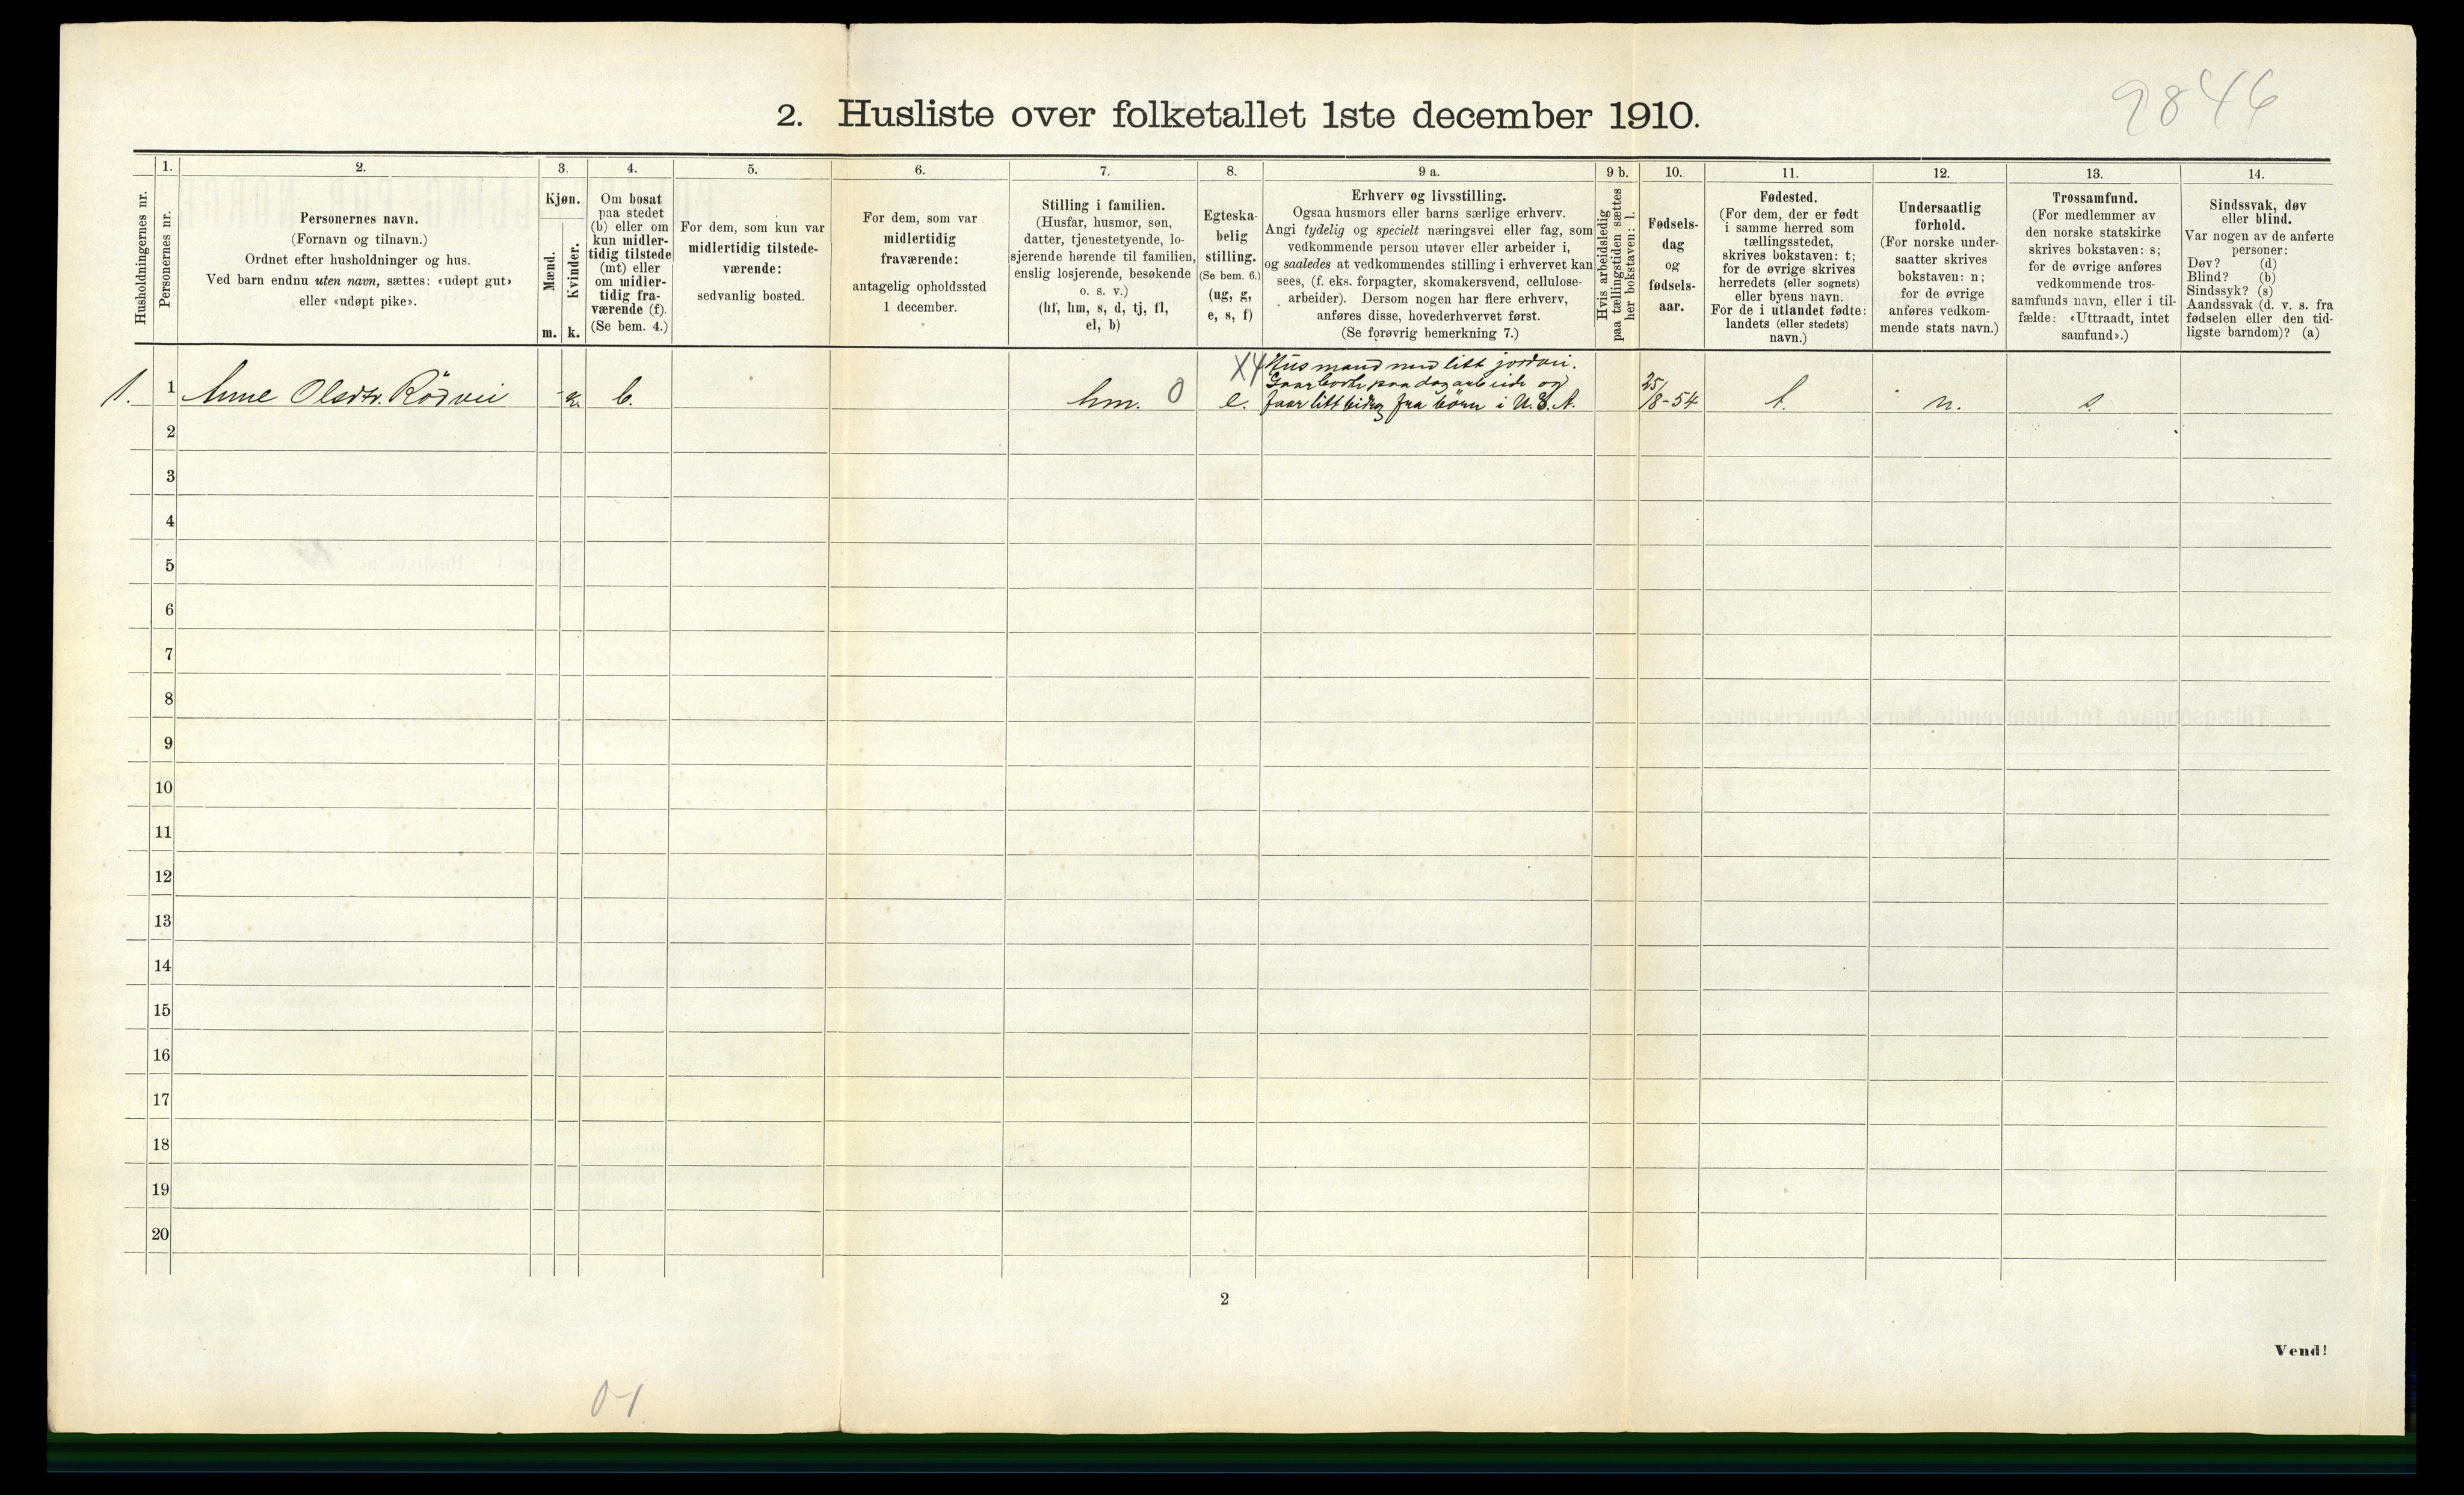 9846
2. Husliste over folketallet 1ste december 1910.
Husholdningernes nr.
1.
Personernes nr.
2.
Personernes navn.
(Fornavn og tilnavn.)
Ordnet efter husholdninger og hus.
Ved barn endnu uten navn, sættes: «udøpt gut»
eller «udøpt pike».
3.
Kjøn.
Mænd.
m.
Kvinder.
k.
4.
Om bosat
paa stedet
(b) eller om
kun midler-
tidig tilstede
(mt) eller
om midler-
tidig fra-
værende (f).
(Se bem. 4.)
5.
For dem, som kun var
midlertidig tilstede-
værende:
sedvanlig bosted.
6.
For dem, som var
midlertidig
fraværende:
antagelig opholdssted
1 december.
7.
Stilling i familien.
(Husfar, husmor, søn,
datter, tjenestetyende, lo-
sjerende hørende til familien,
enslig losjerende, besøkende
o. s. v.)
(hf, hm, s, d, tj, fl,
el, b)
8.
Egteska-
belig
stilling.
(Se bem. 6.)
(ug, g,
e, s, f)
9 a.
Erhverv og livsstilling.
Ogsaa husmors eller barns særlige erhverv.
Angi tydelig og specielt næringsvei eller fag, som
vedkommende person utøver eller arbeider i,
og saaledes at vedkommendes stilling i erhvervet kan
sees, (f. eks. forpagter, skomakersvend, cellulose-
arbeider). Dersom nogen har flere erhverv,
anføres disse, hovederhvervet først.
(Se forøvrig bemerkning 7.)
9 b.
Hvis arbeidsledig
paa tællingstiden sættes
her bokstaven: l.
10.
Fødsels-
dag
og
fødsels-
aar.
11.
Fødested.
(For dem, der er født
i samme herred som
tællingsstedet,
skrives bokstaven: t;
for de øvrige skrives
herredets (eller sognets)
eller byens navn.
For de i utlandet fødte:
landets (eller stedets)
navn.)
12.
Undersaatlig
forhold.
(For norske under-
saatter skrives
bokstaven: n;
for de øvrige
anføres vedkom-
mende stats navn.)
13.
Trossamfund.
(For medlemmer av
den norske statskirke
skrives bokstaven: s;
for de øvrige anføres
vedkommende tros-
samfunds navn, eller i til-
fælde: «Uttraadt, intet
samfund».)
14.
Sindssvak, døv
eller blind.
Var nogen av de anførte
personer:
Døv? (d)
Blind? (b)
Sindssyk? (s)
Aandssvak (d. v. s. fra
fødselen eller den tid-
ligste barndom)? (a)
1. 1 Anne Olsdtr. Rödvei k. b. hm. 0 e.
X4 Husmand med litt jordvei.
Gaar borte paa dagarbeide og
faar litt bidrag fra börn i U.S.A.
25/8-54 t. n. s.
2
3
4
5
6
7
8
9
10
11
12
13
14
15
16
17
18
19
20
2
Vend!
0-1